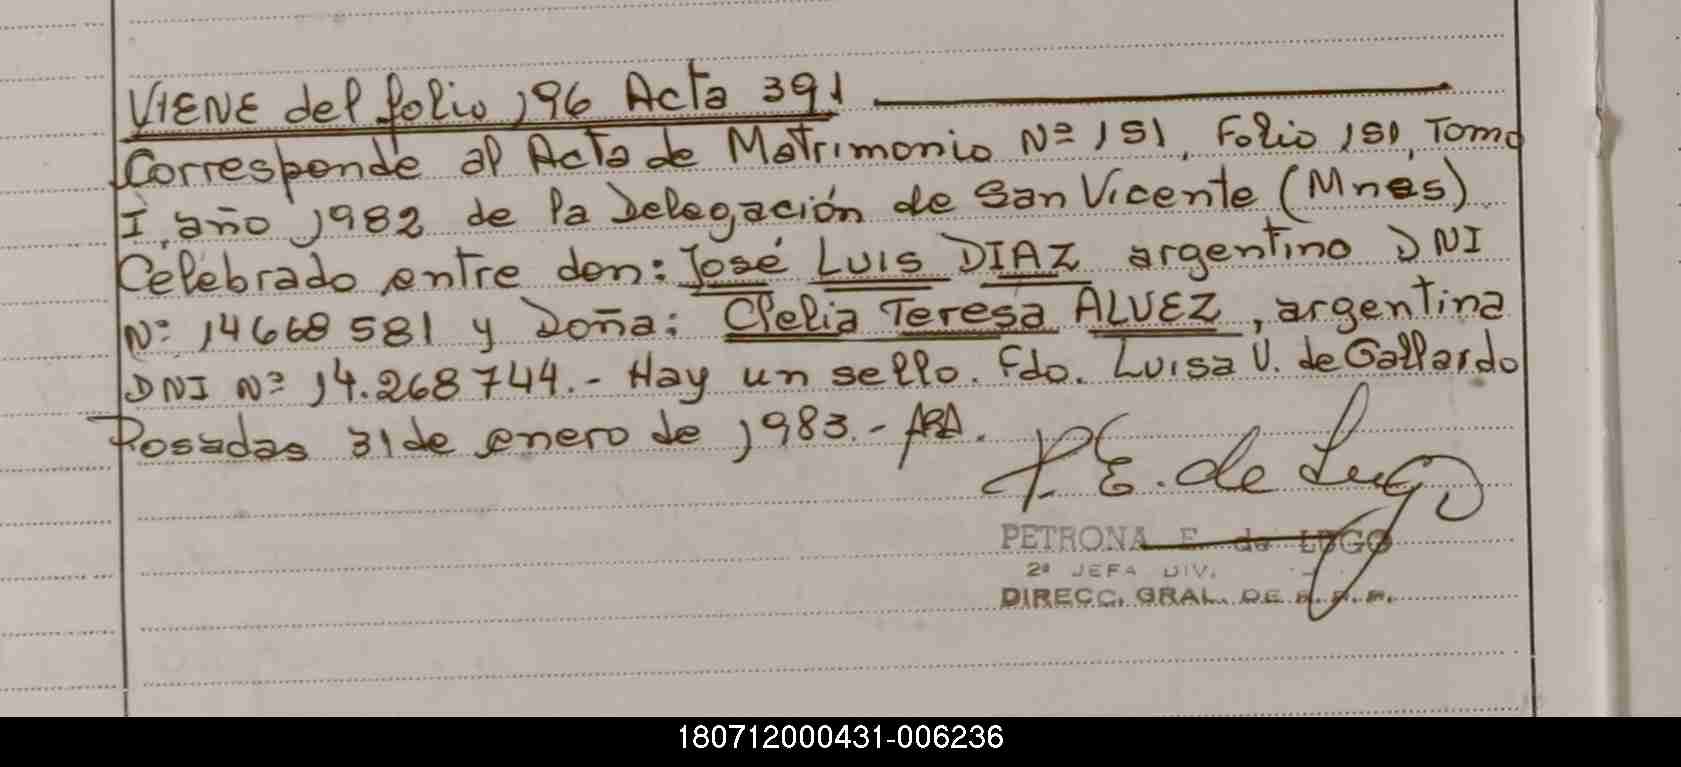 VIENE del folio 196 Acta 391
Corresponde al Acta de Matrimonio Nº 151, Folio 151, Tomo
I, año 1982 de la Delegación de San Vicente (Mnes)
Celebrado entre don: José Luis DIAZ argentino DNI
Nº 14668581 y Doña: Clelia Teresa ALVEZ, argentina
DNI Nº 14.268744.- Hay un sello. Fdo. Luisa V. de Gallardo
Posadas 31 de enero de 1983.-
P. E. de Lugo
PETRONA E. de LUGO
2ª JEFA DIV.
DIRECC. GRAL. DE
180712000431-006236